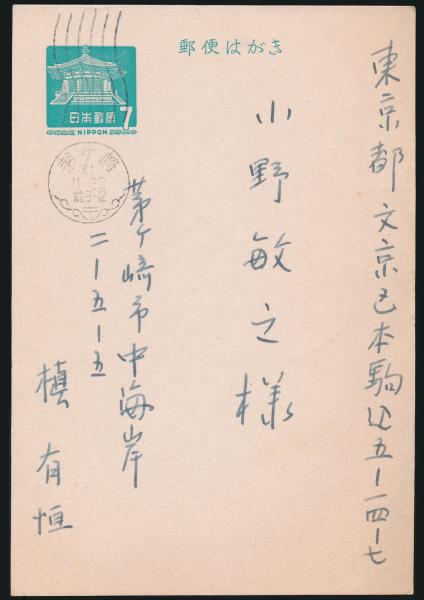 郵便はがき
日本郵便 7
NIPPON
茅ケ崎
前8-12
東京都文京区本駒込五ー一四ー七
小野敏之様
茅ケ崎市中海岸
二ー五ー五
槇有恒